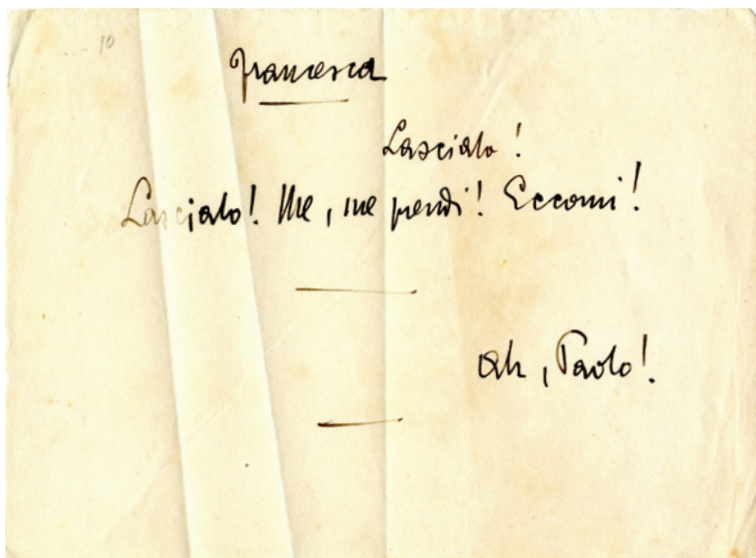 10
Francesca
Lascialo!
Lascialo! Me, me prendi! Eccomi!
Ah, Paolo!